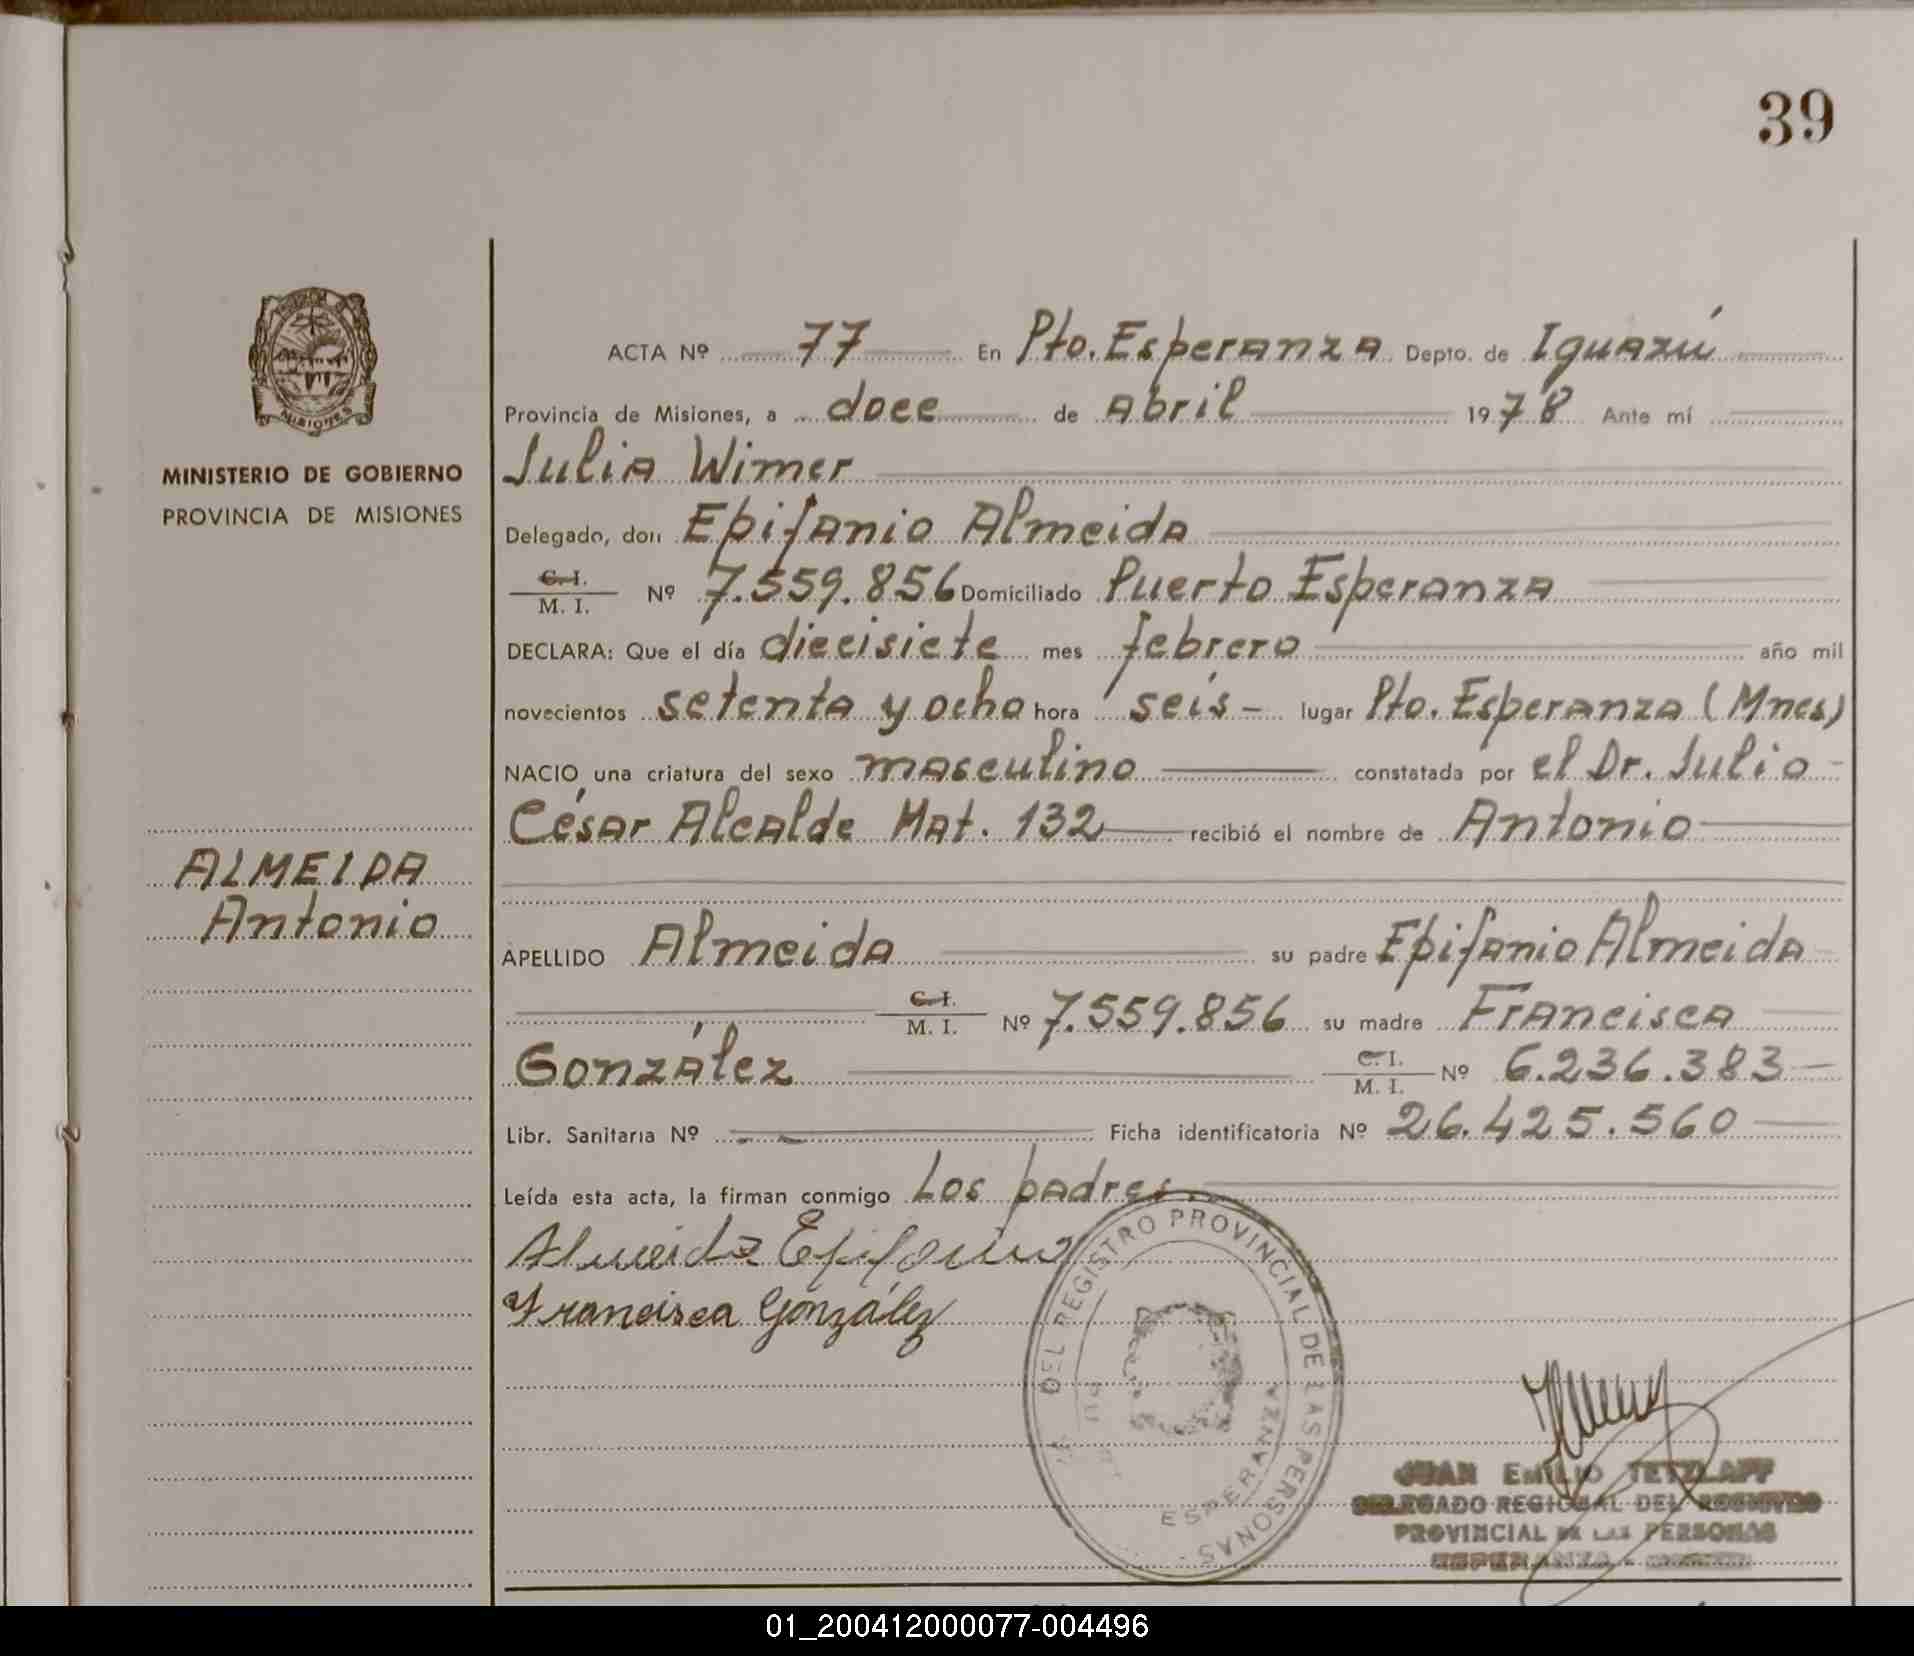 39
MINISTERIO DE GOBIERNO
PROVINCIA DE MISIONES
ALMEIDA
Antonio
ACTA Nº 77 En Pto. Esperanza Depto. de Iguazú
Provincia de Misiones, a doce de Abril 1978 Ante mí
Julia Wimer
Delegado, don Epifanio Almeida
C. I. / M. I. Nº 7.559.856 Domiciliado Puerto Esperanza
DECLARA: Que el día diecisiete mes febrero año mil
novecientos setenta y ocho hora seis - lugar Pto. Esperanza (Mnes)
NACIO una criatura del sexo masculino constatada por el Dr. Julio
César Alcalde Mat. 132 recibió el nombre de Antonio
APELLIDO Almeida su padre Epifanio Almeida
C. I. / M. I. Nº 7.559.856 su madre Francisca
González C. I. / M. I. Nº 6.236.383
Libr. Sanitaria Nº Ficha identificatoria Nº 26.425.560
Leída esta acta, la firman conmigo Los padres.
Almeida Epifanio
Francisca González
DEL REGISTRO PROVINCIAL DE LAS PERSONAS
ESPERANZA
JUAN EMILIO TETZLAFF
DELEGADO REGIONAL DEL REGISTRO
PROVINCIAL DE LAS PERSONAS
ESPERANZA -
01_200412000077-004496